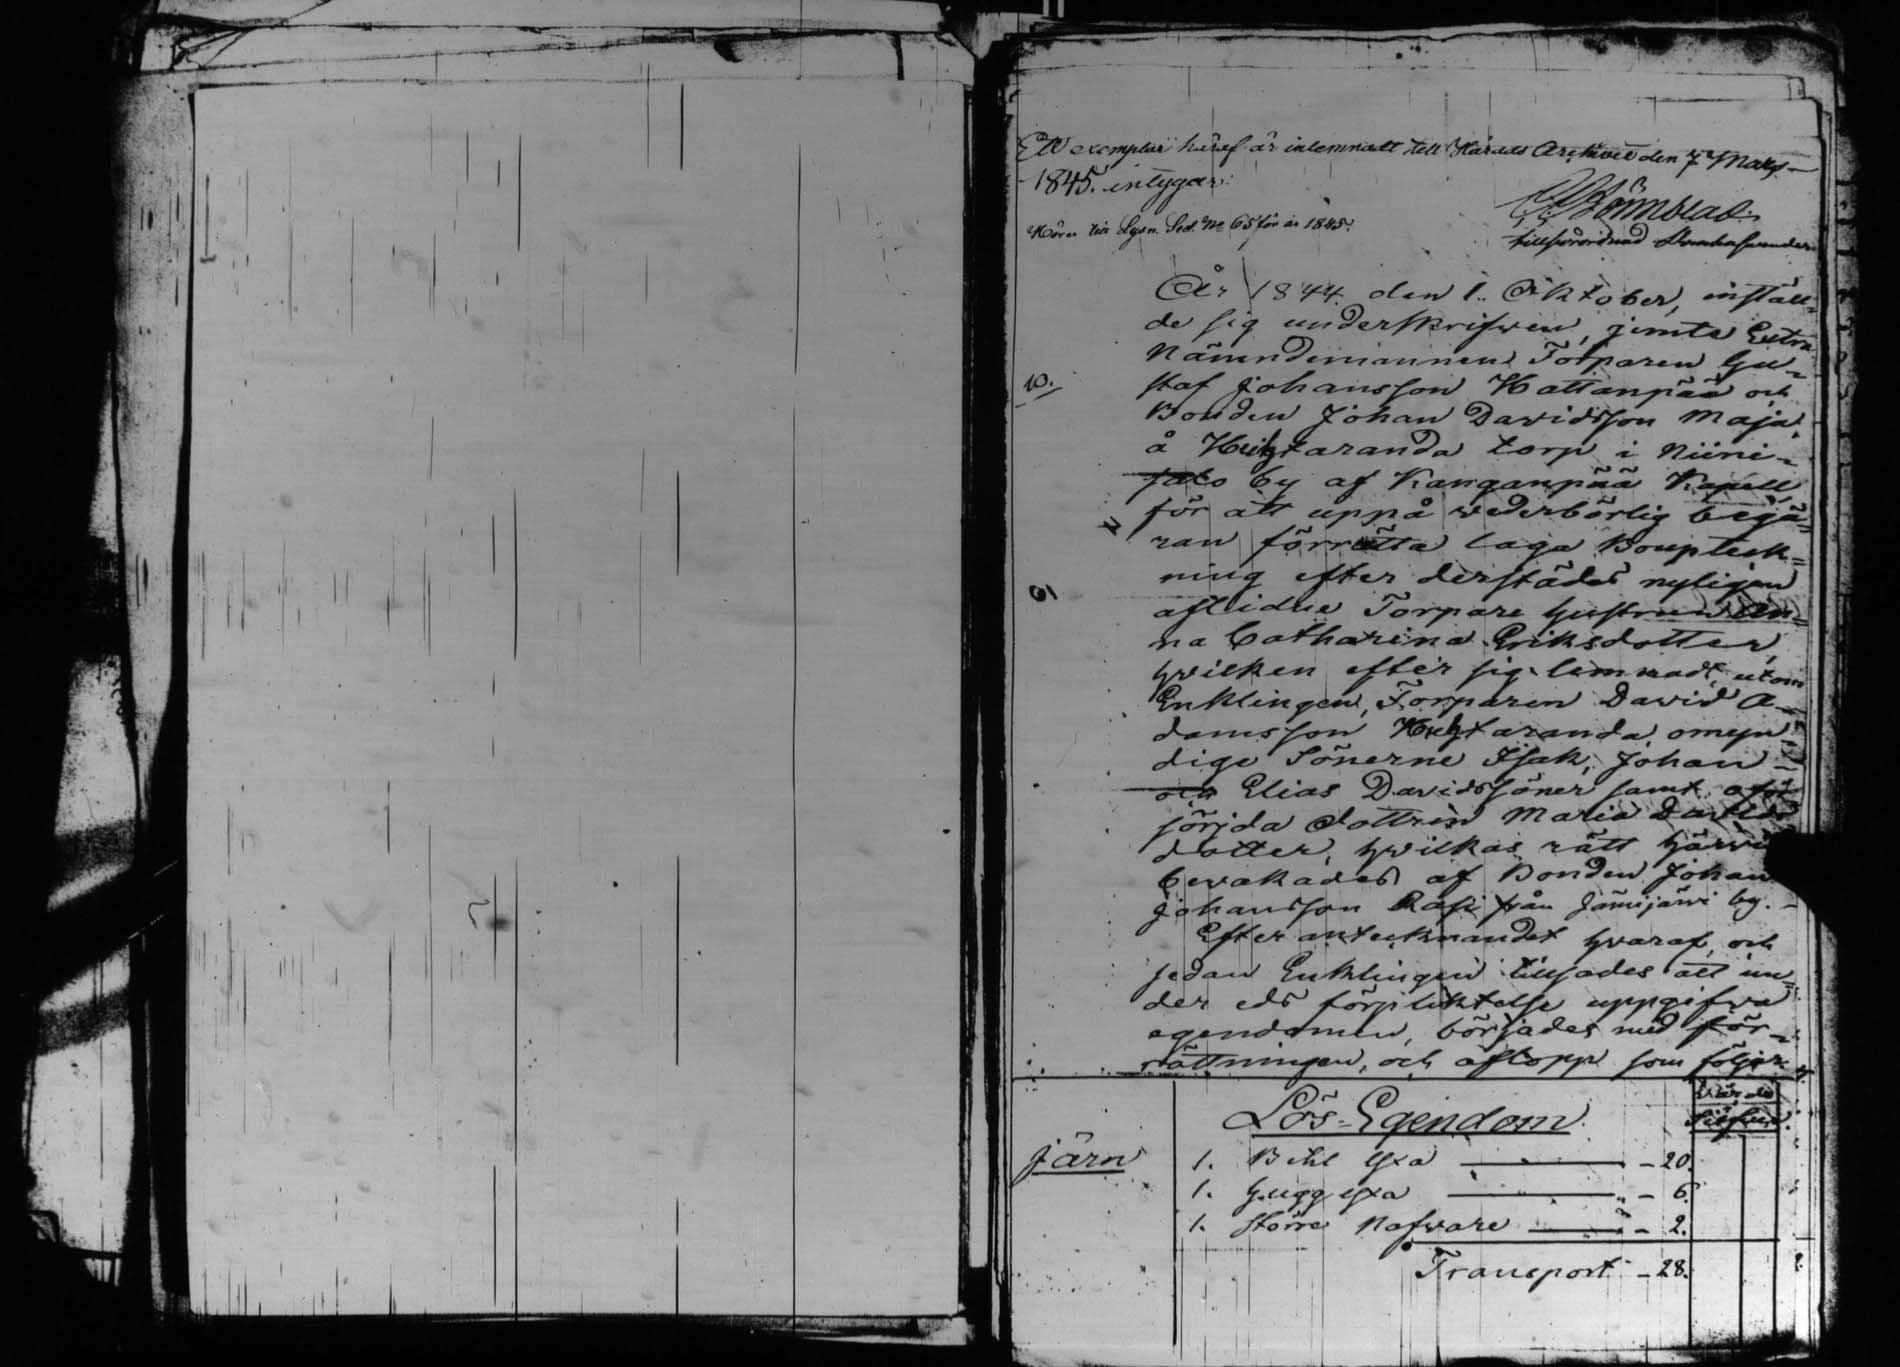 Ett exemplar häraf är inlemnadt till Härads Archivet den 7 Mars
1845. intygar:
Hörer till Lysn. Sed. No 65 för år 1845.
tillförordnad
År 1844 den 1. Oktober, inställ=
de sig underskrifwen, jemte Extra
Nämndemannen Torparen Gu=
staf Johansson Kattanpää och
Bonden Johan Davidsson Maja,
å Huhtaranda torp i Niini=
salo by af Kanganpää Kapell,
för att uppå wederbörlig begä=
ran förrätta laga Bouptek=
ning efter derstädes nyligen
aflidne Torpare hustrun An=
na Catharina Eriksdotter,
hvilken efter sig lemnadt, utom
Enklingen, Torparen David A=
damsson Huhtaranda, omyn=
dige Sönerne Isak, Johan
och Elias Davidssöner samt oför
sörjda dottren Maria Davids
dotter, hvilkas rätt härvid
bevakades af Bonden Johan
Johansson Rasi från Jämijärvi by.
Efter antecknandet hvaraf, och
sedan Enklingen tillsades att un=
der eds förpliktelse uppgifva
egendomen, börjades med för=
rättningen, och aflopp som följer.
10.
Lös=Egendom
Värde
Silfver.
Järn
1. Bihl Yxa — 20.
1. hugg yxa — 6.
1. större Nafvare — 2.
Transport — 28.